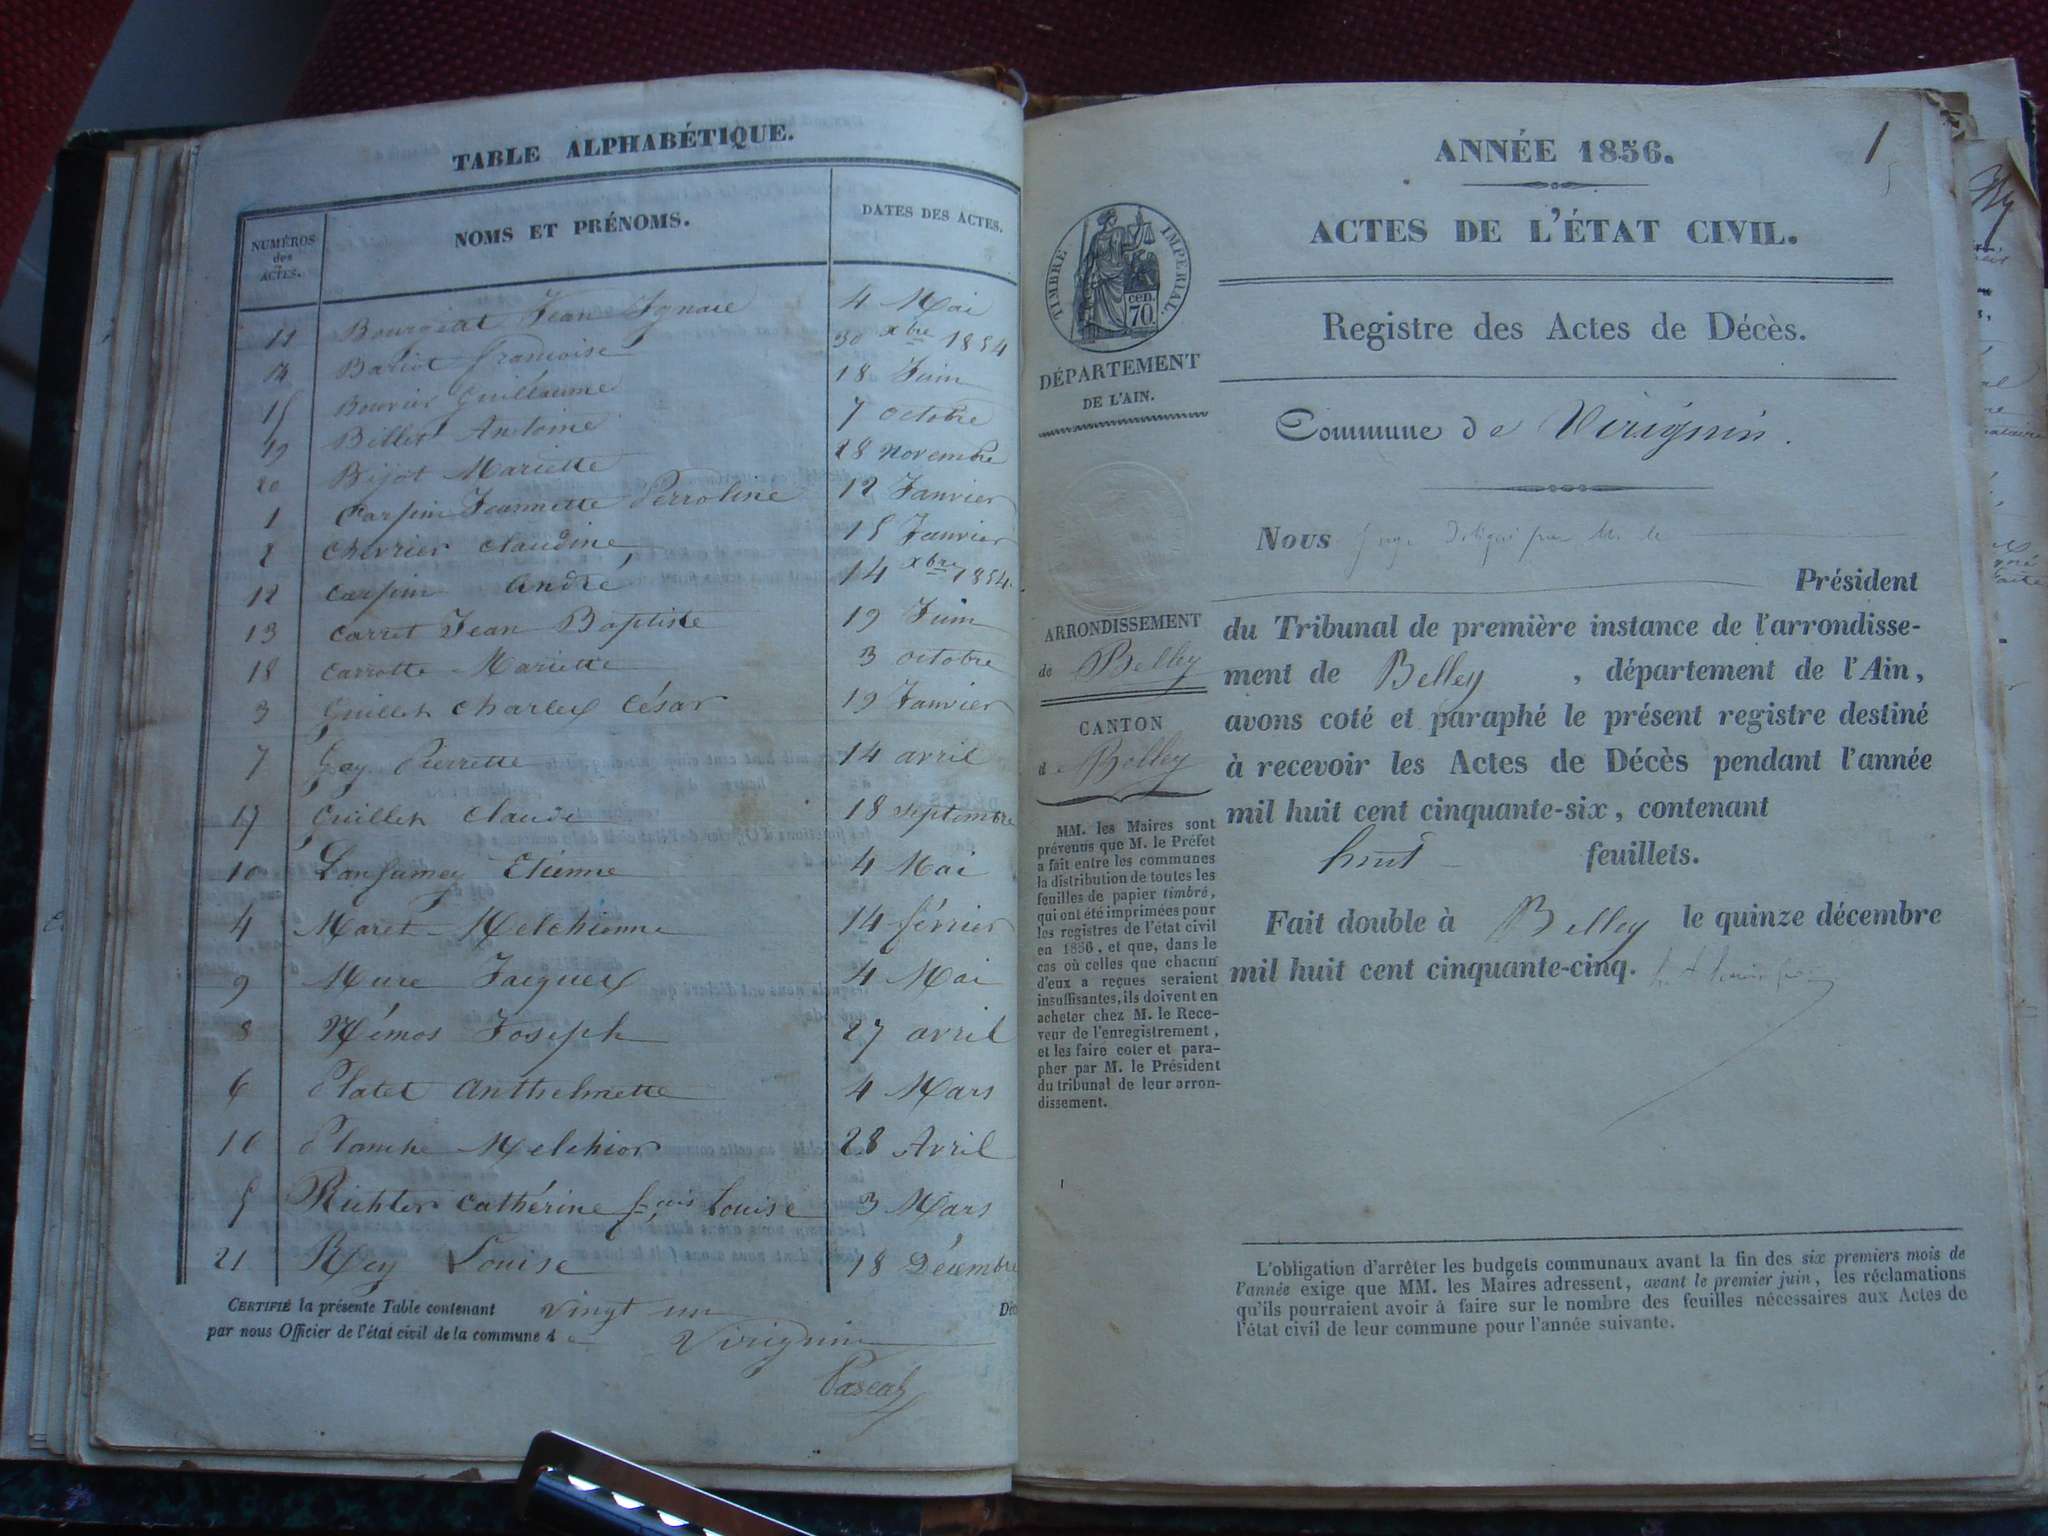 TABLE ALPHABÉTIQUE.
NUMÉROS des ACTES. NOMS ET PRÉNOMS. DATES DES ACTES.
11 Bourgeat Jean Ignace 4 Mai
14 Bariot francoise 30 xbre 1854
15 Bouvier Guillaume 18 Juin
19 Billet Antoine 7 octobre
20 Bijot Mariette 28 Novembre
1 Carpin Jeannette Perroline 12 Janvier
2 Chevrier Claudine 15 Janvier
12 Carpin André 14 xbre 1854.
13 Carret Jean Baptiste 19 Juin
18 Carrotte Mariette 3 octobre
3 Guillet Charles César 19 Janvier
7 Gay Pierrette 14 avril
17 Guillet Claude 18 septembre
10 Lansumey Etienne 4 Mai
4 Maret Melchionne 14 février
9 Mure Jacques 4 Mai
8 Mémos Joseph 27 avril
6 Platet Anthelmette 4 Mars
16 Planche Melchior 28 Avril
5 Richter Cathérine fcoise Louise 3 Mars
21 Rey Louise 18 Décembre
CERTIFIÉ la présente Table contenant vingt un Déc
par nous Officier de l'état civil de la commune de Virignin
Pascal
1
ANNÉE 1856.
ACTES DE L'ÉTAT CIVIL.
Registre des Actes de Décès.
TIMBRE IMPÉRIAL.
cen.
70.
DÉPARTEMENT
DE L'AIN.
Commune de Virignin.
ARRONDISSEMENT
de Belley
CANTON
d Belley
MM. les Maires sont
prévenus que M. le Préfet
a fait entre les communes
la distribution de toutes les
feuilles de papier timbré,
qui ont été imprimées pour
les registres de l'état civil
en 1856, et que, dans le
cas où celles que chacun
d'eux a reçues seraient
insuffisantes, ils doivent en
acheter chez M. le Rece-
veur de l'enregistrement,
et les faire coter et para-
pher par M. le Président
du tribunal de leur arron-
dissement.
Nous juge délégué par M. le
Président
du Tribunal de première instance de l'arrondisse-
ment de Belley , département de l'Ain,
avons coté et paraphé le présent registre destiné
à recevoir les Actes de Décès pendant l'année
mil huit cent cinquante-six, contenant
huit feuillets.
Fait double à Belley le quinze décembre
mil huit cent cinquante-cinq.
1
L'obligation d'arrêter les budgets communaux avant la fin des six premiers mois de
l'année exige que MM. les Maires adressent, avant le premier juin, les réclamations
qu'ils pourraient avoir à faire sur le nombre des feuilles nécessaires aux Actes de
l'état civil de leur commune pour l'année suivante.